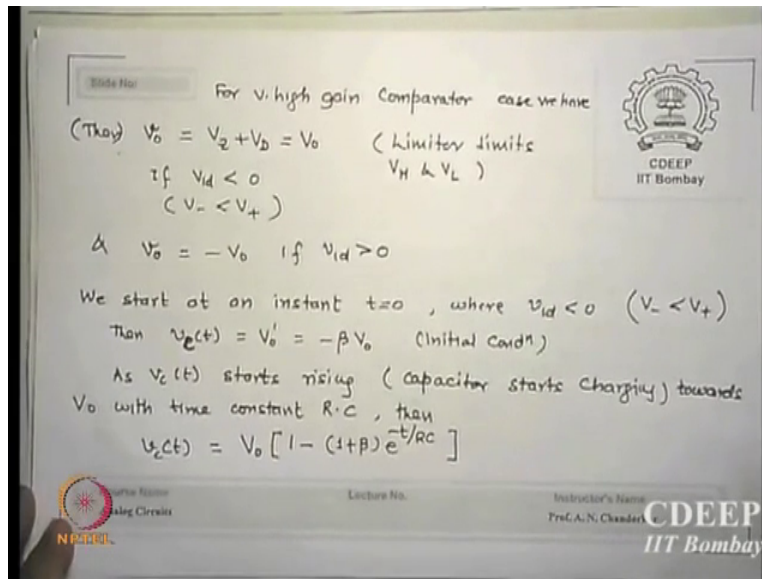 Slide No:
For v. high gain Comparator case we have
(Then) vo = VZ + VD = Vo (Limiter limits
VH & VL )
if vid < 0
( V- < V+ )
& vo = - Vo if vid > 0
We start at an instant t=0 , where vid < 0 (V- < V+)
Then vc(t) = Vo' = - β Vo (Initial Condn)
As vc(t) starts rising ( Capacitor starts Charging) towards
Vo with time constant R.C , then
vc(t) = Vo [ 1 - (1+β) e^-t/RC ]
CDEEP
IIT Bombay
Course Name
Analog Circuits
Lecture No.
Instructor's Name
Prof. A. N. Chandorkar
NPTEL
CDEEP
IIT Bombay